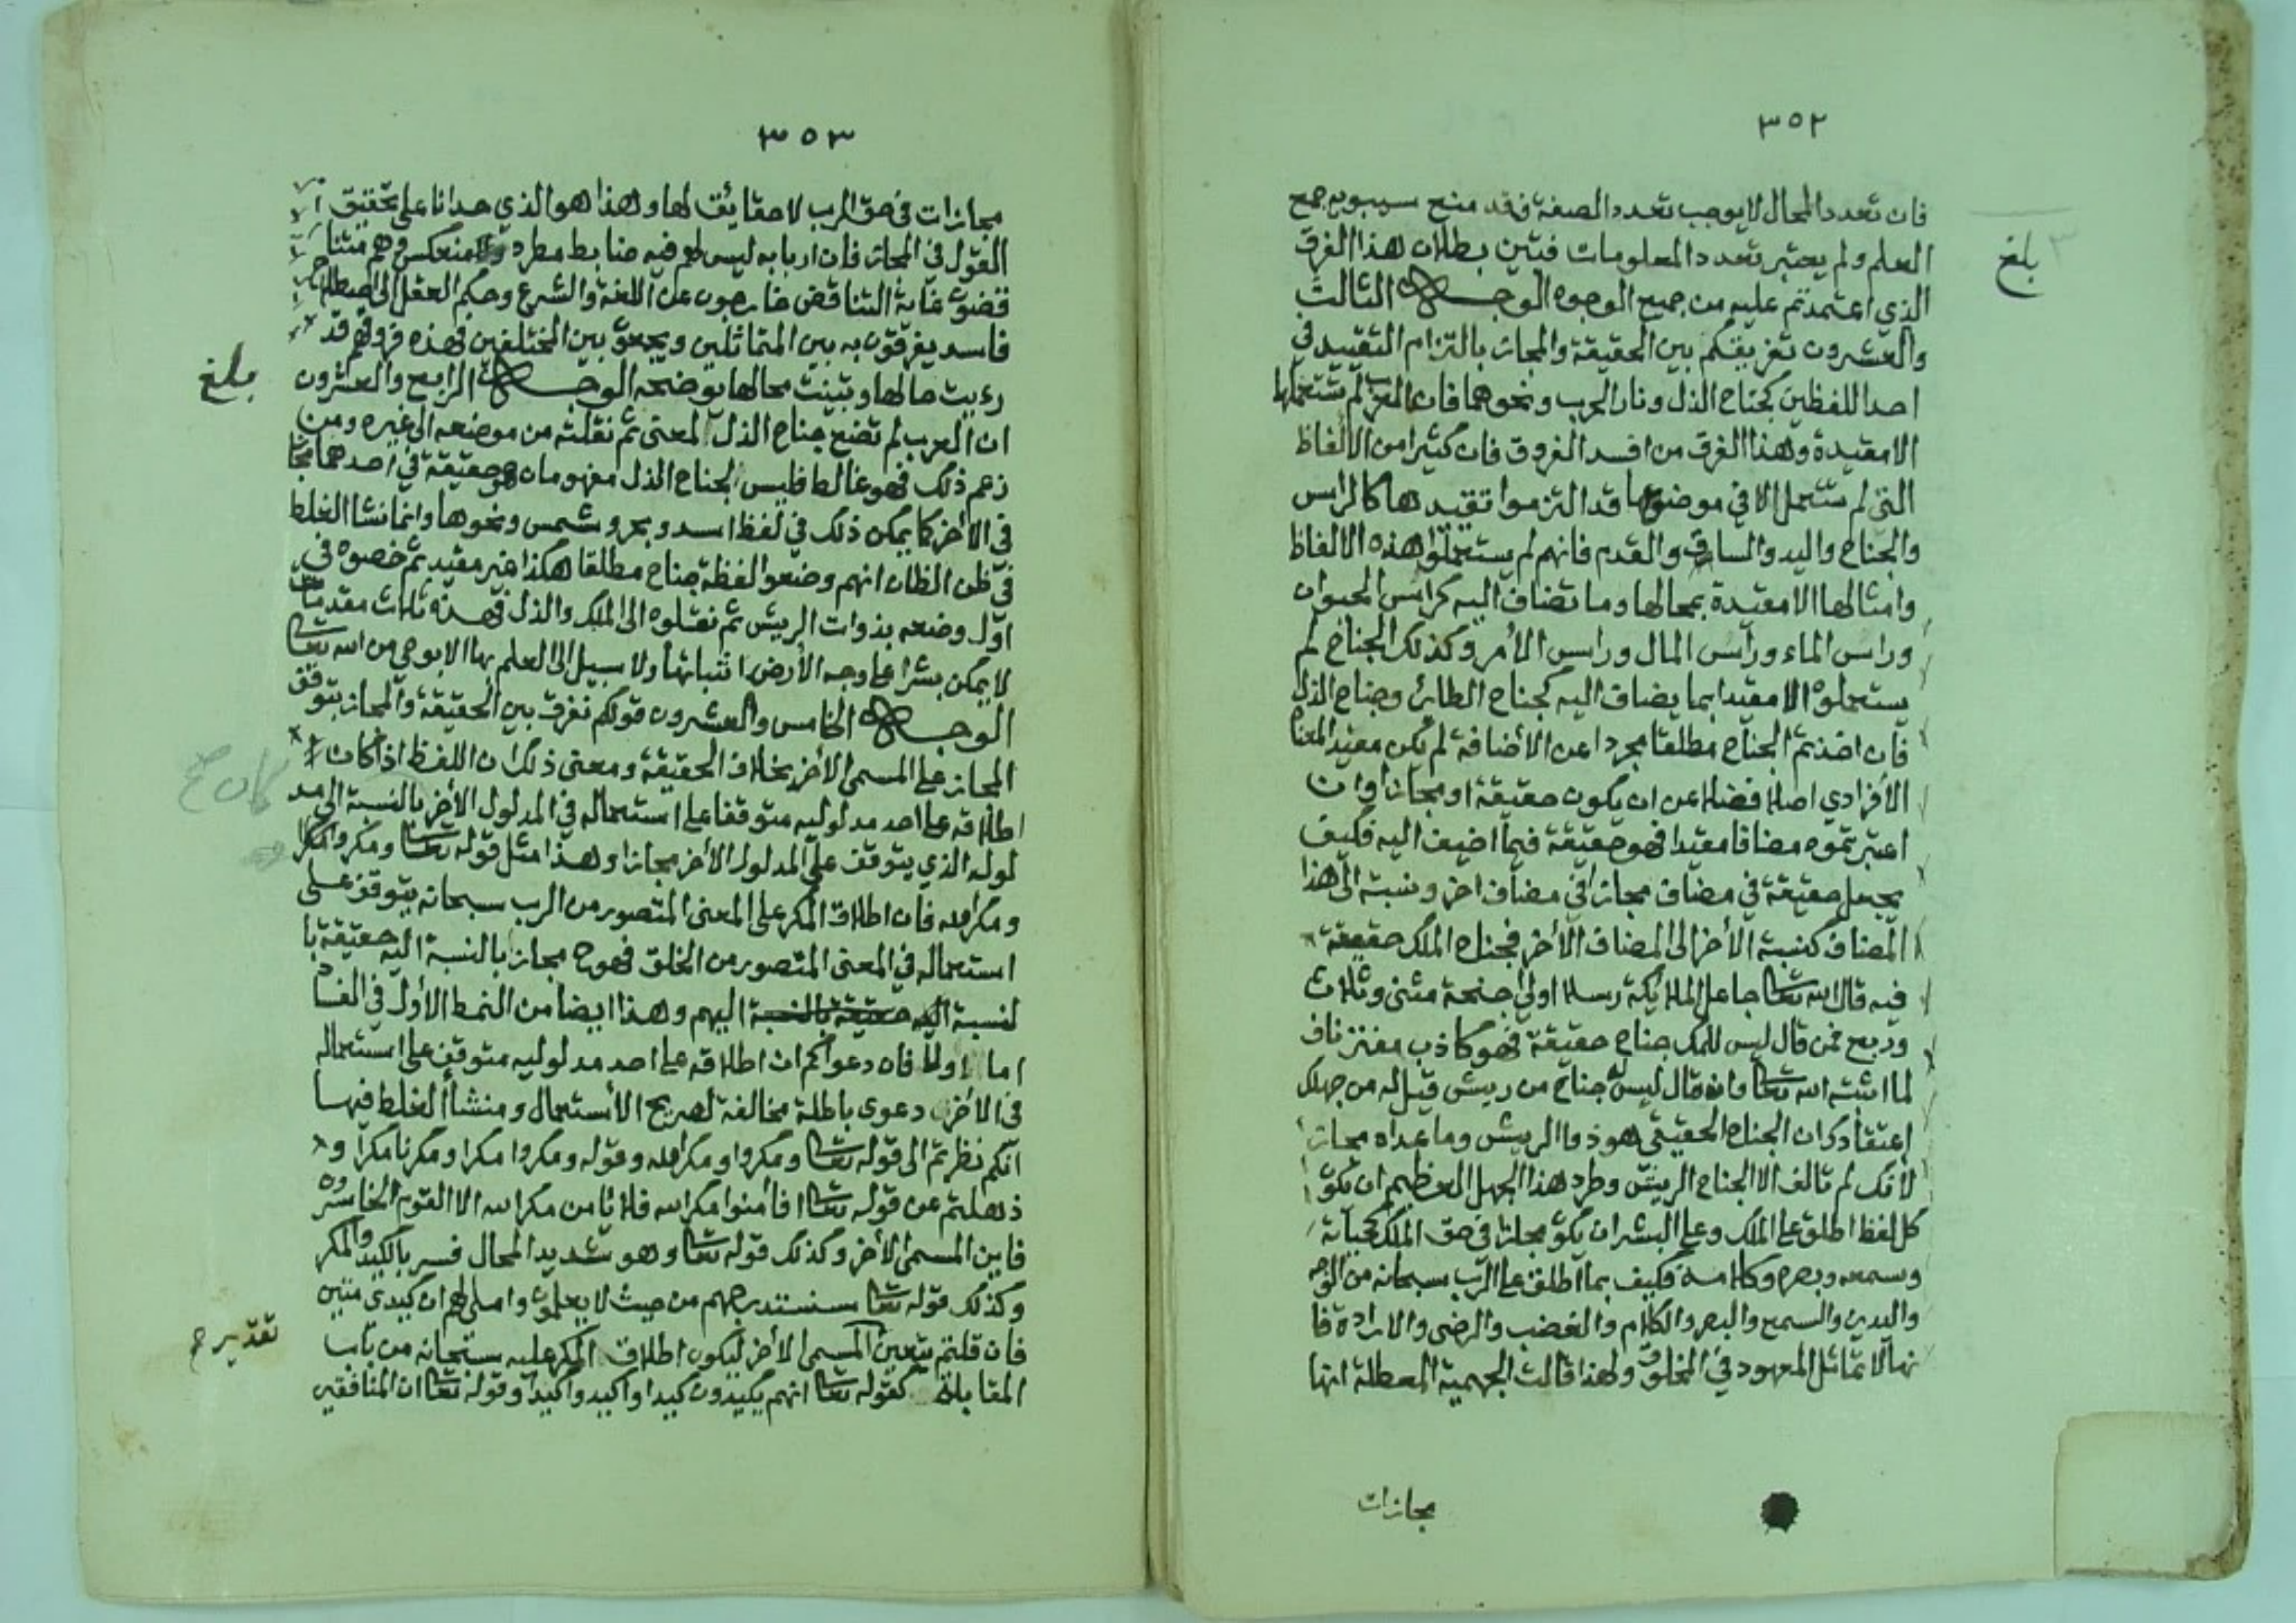 ٣٥٢
فان تعدد المحال لا يوجب تعدد الصفة فقد منع سيبويه جمع
العلم ولم يعتبر تعدد المعلومات فتبين بطلان هذا الفرق
الذي اعتمدتم عليه من جميع الوجوه الوجه الثالث
والعشرون تفريقكم بين الحقيقة والمجاز بالتزام التقييد في
احد اللفظين كجناح الذل ونار الحرب ونحوهما فان العرب لم تستعملها
الا مقيدة وهذا الفرق من افسد الفروق فان كثيرا من الالفاظ
التي لم تستعمل الا في موضوعها قد التزموا تقييدها كالراس
والجناح واليد والساق والقدم فانهم لم يستعملوا هذه الالفاظ
وامثالها الا مقيدة بمحالها وما تضاف اليه كراس الحيوان
وراس الماء وراس المال وراس الأمر وكذلك الجناح لم
يستعملوه الا مقيدا بما يضاف اليه كجناح الطائر وجناح الذل
فان اخذتم الجناح مطلقا مجردا عن الأضافة لم يكن مفيد المعناه
الأفرادي اصلا فضلا عن ان يكون حقيقة او مجازا وان
اعتبرتموه مضافا مقيدا فهو حقيقة فيما اضيف اليه فكيف
يجعل حقيقة في مضاف مجازا في مضاف اخر ونسبته الى هذا
المضاف كنسبة الأخر الى المضاف الأخر فجناح الملك حقيقة
فيه قال الله تعالى جاعل الملائكة رسلا اولي اجنحة مثنى وثلاث
وربع فمن قال ليس للملك جناح حقيقة فهو كاذب مفتر ناف
لما اثبته الله تعالى وان قال ليس له جناح من ريش قيل له من جهلك
اعتقادك ان الجناح الحقيقي هو ذو الريش وما عداه مجاز
لأنك لم تالف الا الجناح الريش وطرد هذا الجهل العظيم ان يكون
كل لفظ اطلق على الملك وعلى البشر ان يكون مجازا في حق الملك كحياته
وسمعه وبصره وكلامه فكيف بما اطلق على الرب سبحانه من الوجه
واليدين والسمع والبصر والكلام والغضب والرضى والارادة فا
نها لا تماثل المعهود في المخلوق ولهذا قالت الجهمية المعطلة انها
مجازات
بلغ
٣٥٣
مجازات في حق الرب لا حقائق لها وهذا هو الذي حدانا على تحقيق
القول في المجاز فان اربابه ليس لهم فيه ضابط مطرد ولا منعكس وهم متنا
قضون غاية التناقض خارجون عن اللغة والشرع وحكم العقل الى اصطلاح
فاسد يفرقون به بين المتماثلين ويجمعون بين المختلفين فهذه فروقهم قد
رءيت حالها وتبينت محالها يوضحه الوجه الرابع والعشرون
ان العرب لم تضع جناح الذل لمعنى ثم نقلته من موضعه الى غيره ومن
زعم ذلك فهو غالط فليس لجناح الذل مفهومان وهو حقيقة في احدهما مجاز
في الأخر كما يمكن ذلك في لفظ اسد وبحر وشمس ونحوها وانما نشا الغلط
في ظن الظان انهم وضعوا لفظة جناح مطلقا هكذا غير مقيد ثم خصوه في
اول وضعه بذوات الريش ثم نقلوه الى الملك والذل فهذه ثلاث مقدمات
لا يمكن بشرا على وجه الأرض اثباتها ولا سبيل الى العلم بها الا بوحي من الله تعالى
الوجه الخامس والعشرون قولكم نفرق بين الحقيقة والمجاز بتوقف
المجاز على المسمى الأخر بخلاف الحقيقة ومعنى ذلك ان اللفظ اذا كان
اطلاقه على احد مدلوليه متوقفا على استعماله في المدلول الأخر بالنسبة الى مد
لوله الذي يتوقف على المدلول الأخر مجازا وهذا مثل قوله تعالى ومكروا مكرا
ومكر الله فان اطلاق المكر على المعنى المتصور من الرب سبحانه يتوقف على
استعماله في المعنى المتصور من الخلق فهو ح مجاز بالنسبة اليه حقيقة با
لنسبة اليه حقيقة بالنسبة اليهم وهذا ايضا من النمط الأول في الفساد
اما اولا فان دعواكم ان اطلاقه على احد مدلوليه متوقف على استعماله
في الأخر دعوى باطلة مخالفة لصريح الأستعمال ومنشأ الغلط فيها
انكم نظرتم الى قوله تعالى ومكروا ومكر الله وقوله ومكروا مكرا ومكرنا مكرا و
ذهلتم عن قوله تعالى افأمنوا مكر الله فلا يامن مكر الله الا القوم الخاسرون
فاين المسمى الأخر وكذلك قوله تعالى وهو شديد المحال فسر بالكيد والمكر
وكذلك قوله تعالى سنستدرجهم من حيث لا يعلمون واملي لهم ان كيدي متين
فان قلتم يتعين المسمى الأخر ليكون اطلاق المكر عليه سبحانه من باب
المقابلة كقوله تعالى انهم يكيدون كيدا واكيد واكيدا وقوله تعالى ان المنافقين
بلغ
كان صح
تقدير ح